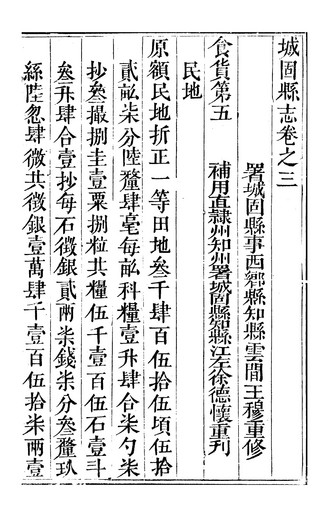 城固縣志卷之三
署城固縣事西鄉縣知縣雲間王穆重修
食貨第五
補用直隸州知州署城固縣知縣江左徐德懷重刊
民地
原額民地折正一等田地叁千肆百伍拾伍頃伍拾
貳畝柒分陸釐肆毫每畝科糧壹升肆合柒勺柒
抄叁撮捌圭壹粟捌粒共糧伍千壹百伍石壹斗
叁升肆合壹抄每石徵銀貳兩柒錢柒分叁釐玖
絲陸忽肆微共徵銀壹萬肆千壹百伍拾柒兩壹